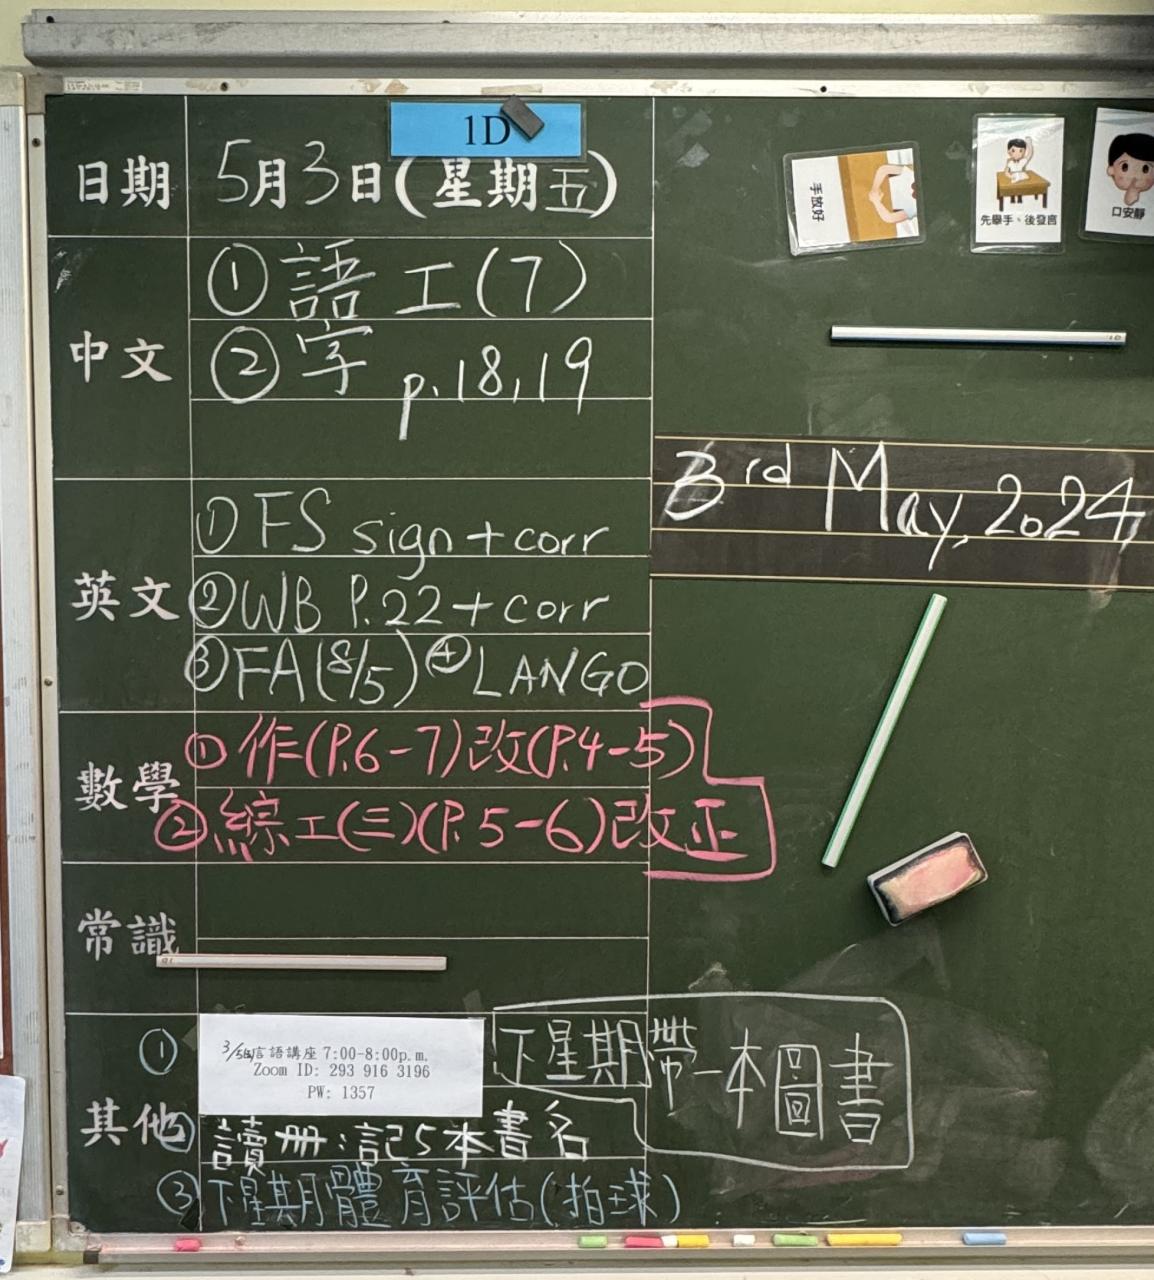 1D
日期 5月3日(星期五)
中文
①語工(7)
②字 p.18,19
英文
①FS sign+corr
②WB P.22+corr
③FA(8/5) ④LANGO
數學
①作(P.6-7)改(P.4-5)
②綜工(三)(P.5-6)改正
常識
其他
①
3/5 言語講座 7:00-8:00p.m.
Zoom ID: 293 916 3196
PW: 1357
下星期帶一本圖書
② 讀冊:記5本書名
③下星期體育評估(拍球)
手放好
先舉手、後發言
口安靜
3rd May, 2024,